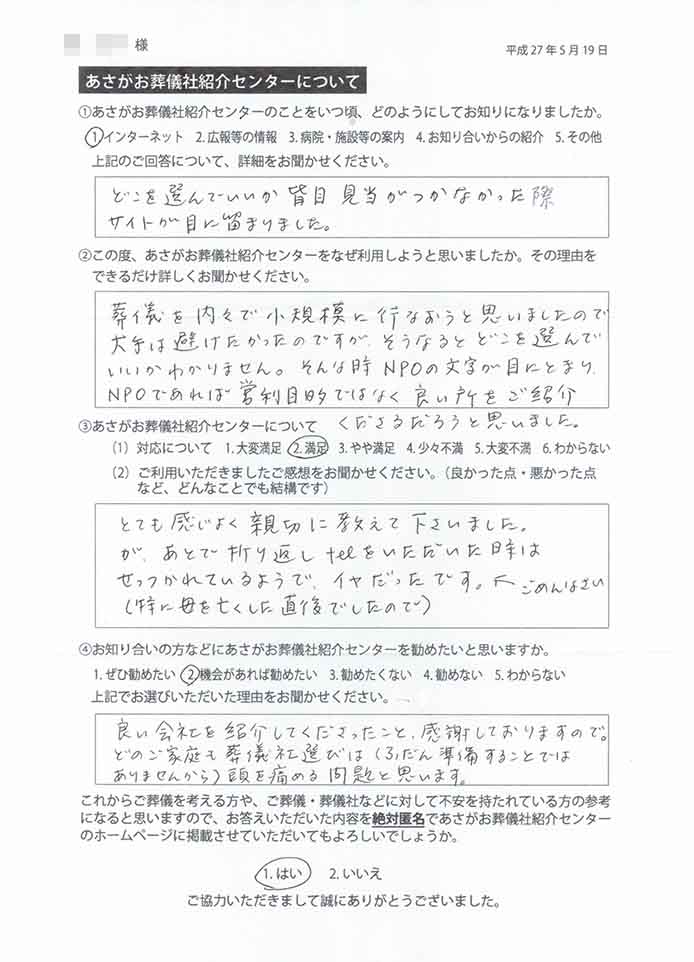 様
平成27年5月19日
あさがお葬儀社紹介センターについて
①あさがお葬儀社紹介センターのことをいつ頃、どのようにしてお知りになりましたか。
1.インターネット 2.広報等の情報 3.病院・施設等の案内 4.お知り合いからの紹介 5.その他
上記のご回答について、詳細をお聞かせください。
どこを選んでいいか皆目見当がつかなかった際
サイトが目に留まりました。
②この度、あさがお葬儀社紹介センターをなぜ利用しようと思いましたか。その理由を
できるだけ詳しくお聞かせください。
葬儀を内々で小規模に行なおうと思いましたので
大手は避けたかったのですが、そうなるとどこを選んで
いいかわかりません。そんな時NPOの文字が目にとまり、
NPOであれば営利目的ではなく良い所をご紹介
くださるだろうと思いました。
③あさがお葬儀社紹介センターについて
(1) 対応について 1.大変満足 2.満足 3.やや満足 4.少々不満 5.大変不満 6.わからない
(2) ご利用いただきましたご感想をお聞かせください。(良かった点・悪かった点
など、どんなことでも結構です)
とても感じよく親切に教えて下さいました。
が、あとで折り返しtelをいただいた時は
せっつかれているようで、イヤだったです。←ごめんなさい
(特に母を亡くした直後でしたので)
④お知り合いの方などにあさがお葬儀社紹介センターを勧めたいと思いますか。
1.ぜひ勧めたい 2.機会があれば勧めたい 3.勧めたくない 4.勧めない 5.わからない
上記でお選びいただいた理由をお聞かせください。
良い会社を紹介してくださったこと、感謝しておりますので。
どのご家庭も葬儀社選びは(ふだん準備することでは
ありませんから)頭を痛める問題と思います。
これからご葬儀を考える方や、ご葬儀・葬儀社などに対して不安を持たれている方の参考
になると思いますので、お答えいただいた内容を絶対匿名であさがお葬儀社紹介センター
のホームページに掲載させていただいてもよろしいでしょうか。
1.はい 2.いいえ
ご協力いただきまして誠にありがとうございました。